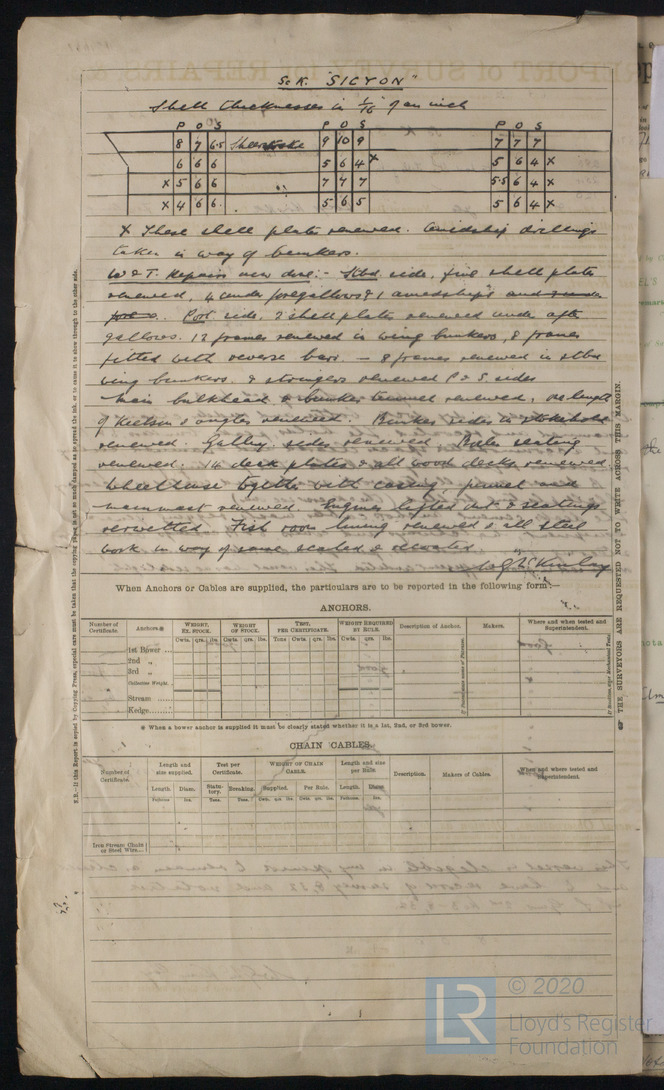 Sc K. "SICYON"
Shell thicknesses in 1/16 of an inch
P O S P O S P O S
8 7 6.5 Sheerstrake 9 10 9 7 7 7
6 6 6 5 6 4 x 5 6 4 x
x 5 6 6 " 7 7 7 5.5 6 4 x
x 4 6 6 5 6 5 5 6 4 x
X These shell plates renewed. Amidship drillings
taken in way of bunkers.
W & T. Repairs now done:- Stbd. side, five shell plates
renewed, 4 under foregallows & 1 amidships and under
fore. Port side, 2 shell plates renewed under after
gallows. 12 frames renewed in wing bunkers, 8 frames
fitted with reverse bars. - 8 frames renewed in stbd
wing bunkers. & stringers renewed P & S. sides
main bulkhead & bunker tunnel renewed, length
of keelson & angles renewed. Bunker sides in stokehold
renewed. Galley sides renewed. Boiler seating
renewed. 14 deck plates & all wood decks renewed.
Wheelhouse together with casing funnel and
mainmast renewed. Engines lifted out & seatings
rerivetted. Fish room lining renewed & all steel
work in way of same scaled &
McKinlay
When Anchors or Cables are supplied, the particulars are to be reported in the following form:—
ANCHORS.
Number of Certificate. Anchors.* WEIGHT, EX. STOCK. WEIGHT OF STOCK. TEST, PER CERTIFICATE. WEIGHT REQUIRED BY RULE. Description of Anchor. Makers. Where and when tested and Superintendent.
Cwts. qrs. lbs. Cwts. qrs. lbs. Tons Cwts. qrs. lbs. Cwts. qrs. lbs.
1st Bower ..
2nd "
3rd "
Collective Weight.
Stream ......
Kedge......
* When a bower anchor is supplied it must be clearly stated whether it is a 1st, 2nd, or 3rd bower.
CHAIN CABLES.
Number of Certificate. Length and size supplied. Test per Certificate. WEIGHT OF CHAIN CABLE. Length and size per Rule. Description. Makers of Cables. When and where tested and Superintendent.
Length. Diam. Statutory. Breaking. Supplied. Per Rule. Length. Diam.
Fathoms Ins. Tons. Tons. Cwts. qrs. lbs. Cwts. qrs. lbs. Fathoms. Ins.
Iron Stream Chain or Steel Wire...
THE SURVEYORS ARE REQUESTED NOT TO WRITE ACROSS THIS MARGIN.
© 2020
LR
Lloyd's Register
Foundation